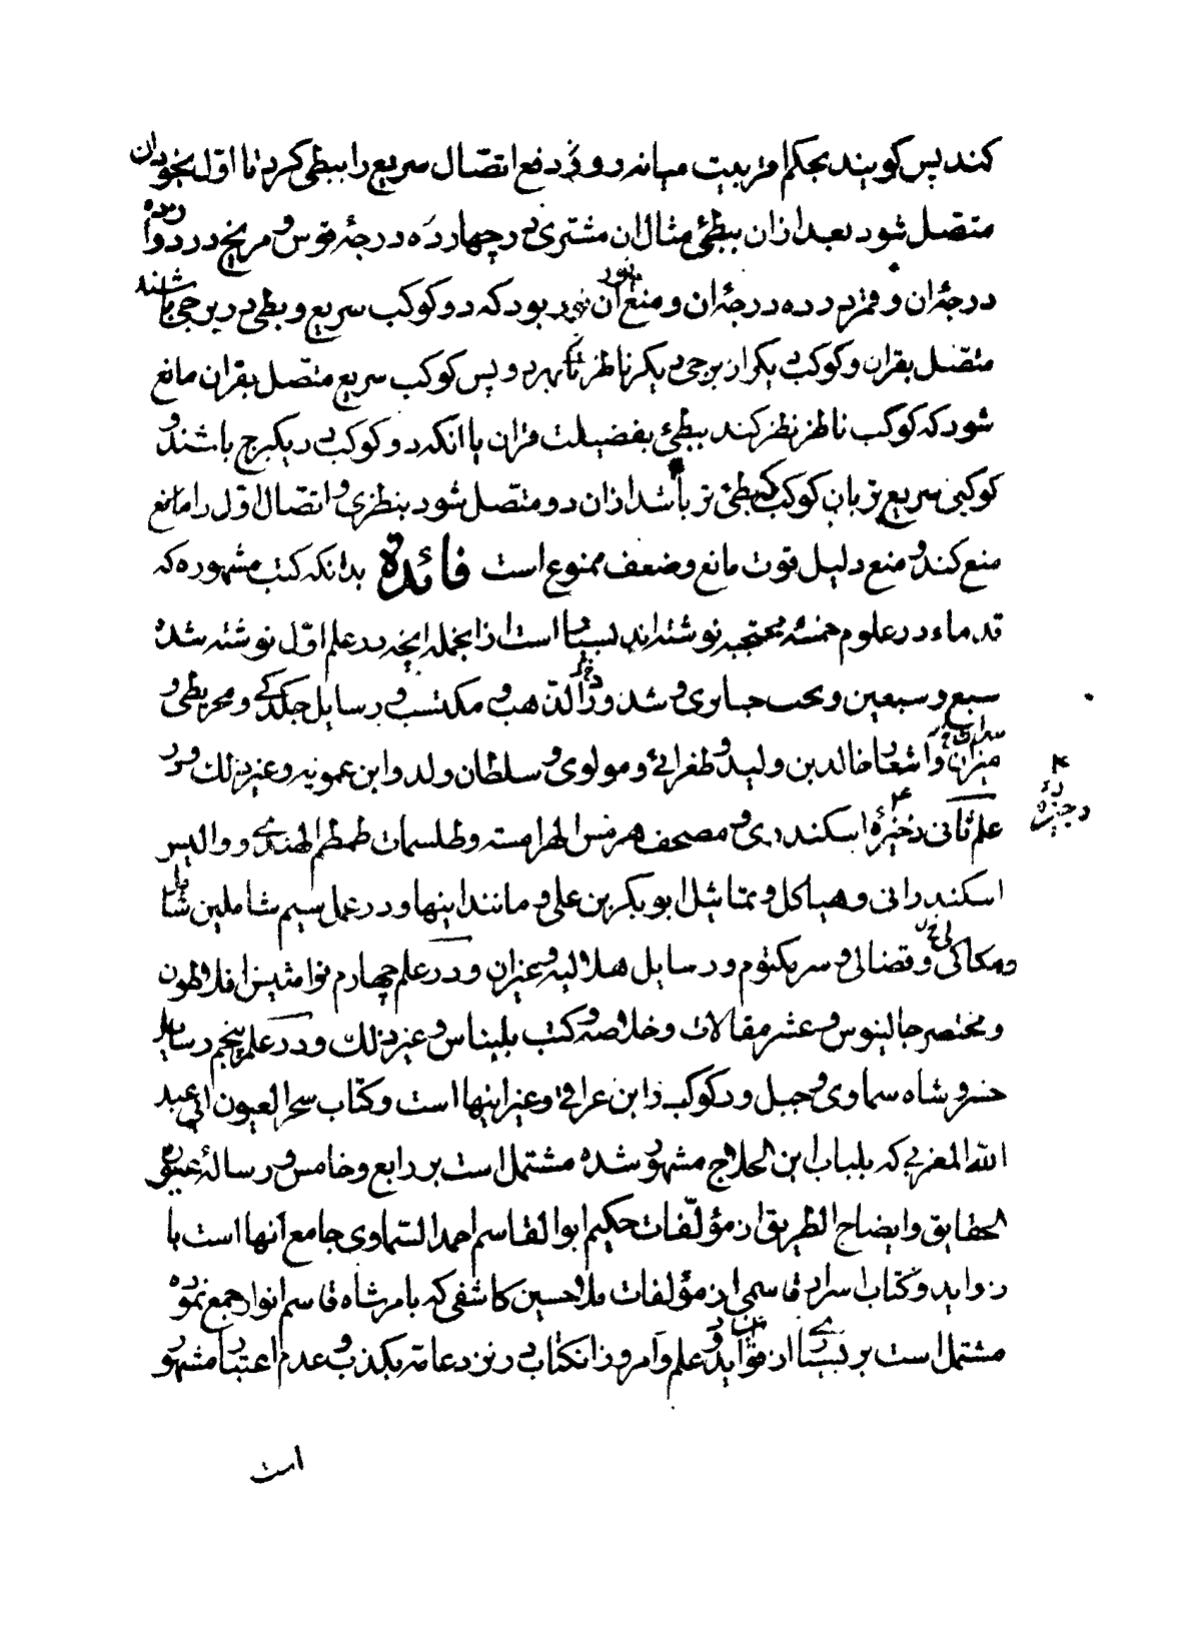 کند پس کویند بحکم اقربیت میانه رو و دفع اتصال سریع را ببطی کرد تا اول بخود ان
متصل شود بعد ازان ببطئ مثال ان مشتری در چهارده درجهٔ قوس و مریخ در دوازده
درجهٔ ان و قمر در ده درجهٔ ان و منع ان بود که دو کوکب سریع و بطی در برجی باشند
متصل بقران و کوکب دیکر از برجی دیکر ناظر و پس کوکب سریع متصل بقران مانع
شود که کوکب ناظر نظر کند ببطئ بفضیلت قران یا انکه دو کوکب در یکبرج باشند و
کوکبی سریع تر بان کوکب که بطئ تر باشد ازان دو متصل شود بنظری و اتصال اول را مانع
منع کند و منع دلیل قوت مانع و ضعف ممنوع است فائدة بدانکه کتب مشهوره که
قدماء در علوم خمسهٔ محتجبه نوشته‌اند بسیار است ازانجمله انچه در علم اوّل نوشته شده
سبع و سبعین و نخب جابری و شذور الذهب و مکتسب و رسایل جلدکے و مجریطی و
میزان و اشعار خالد بن ولید و طغرائے و مولوی و سلطان ولد و ابن عمویه و غیر ذلك و در
علم ثانی ذخیرهٔ اسکندری و مصحف هرمس الهرامسة و طلسمات طمطم الهندے و والیس
اسکندرانی و هیاکل و تماثیل ابو بکر بن علی و مانند اینها و در عمل سیم شاملین
و سکاکی و قضائی و سر مکتوم و رسایل هلالیه و عیزان و در علم چهارم نوامیس افلاطون
و مختصر جالینوس و عشر مقالات و خلاصه و کتب بلیناس و غیر ذلك و در علم پنجم رسایل
خسرو شاه سماوی و حیل و دکوکب و ابن عراقی و غیر اینها است و کتاب سحر العیون ابی عبد
الله المغربی که بلباب ابن الحلاج مشهور شده مشتمل است بر رابع و خامس و رسالهٔ عیون
الحقایق و ایضاح الطریق از مؤلّفات حکیم ابو القاسم احمد السّماوی جامع آنها است با
زواید و کتاب اسرار قاسمی از مؤلفات ملا حسین کاشفی که بامر شاه قاسم انوار جمع نموده
مشتمل است بر بسیارے از فواید و علم و امروز انکتاب در نزد عامه بکذب و عدم اعتبار مشهور
است